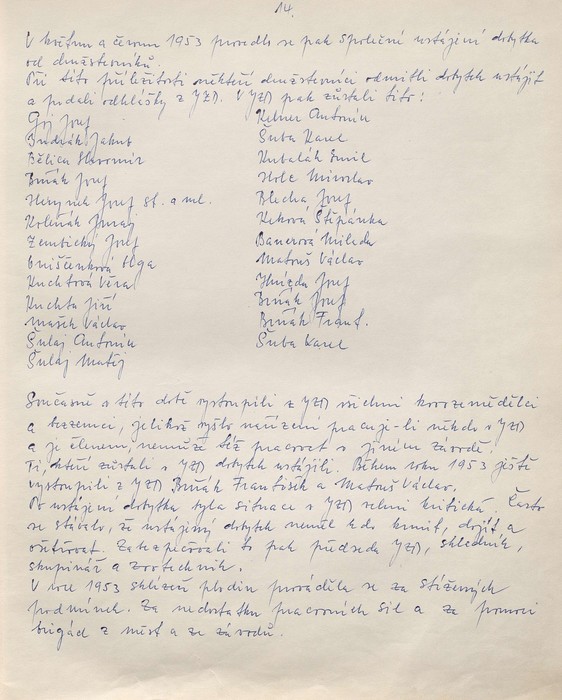 14.
V květnu a červnu 1953 provedlo se pak společné ustájení dobytka
od družstevníků.
Při této příležitosti někteří družstevníci odmítli dobytek ustájit
a podali odhlášky z JZD. V JZD pak zůstali tito:
Goj Josef
Budnák Jakub
Bělica Slavomír
Brňák Josef
Heryna Josef st. a ml.
Kolenák Juraj
Zemtický Josef
Oniščenková Olga
Kuchtová Věra
Kuchta Jiří
Mašík Václav
Šulaj Antonín
Šulaj Matěj
Kelner Antonín
Šuba Karel
Kubalák Emil
Holč Miroslav
Blecha Josef
Keková Štěpánka
Bauerová Milada
Matouš Václav
Hvízda Josef
Brňák Josef
Brňák Frant.
Šuba Karel
Současně v této době vystoupili z JZD všichni kovozemědělci
a bezzemci, jelikož vyšlo nařízení pracuje-li někdo v JZD
a je členem, nemůže též pracovat v jiném závodě.
Ti, kteří zůstali v JZD dobytek ustájili. Během roku 1953 ještě
vystoupili z JZD Brňák František a Matouš Václav.
Po ustájení dobytka byla situace v JZD velmi kritická. Často
se stávalo, že ustájený dobytek neměl kdo krmit, dojit a
ošetřovat. Zabezpečovali to pak předseda JZD, skladník,
skupinář a zootechnik.
V roce 1953 sklizeň plodin prováděla se za stížených
podmínek. Za nedostatku pracovních sil a za pomoci
brigád z měst a ze závodů.